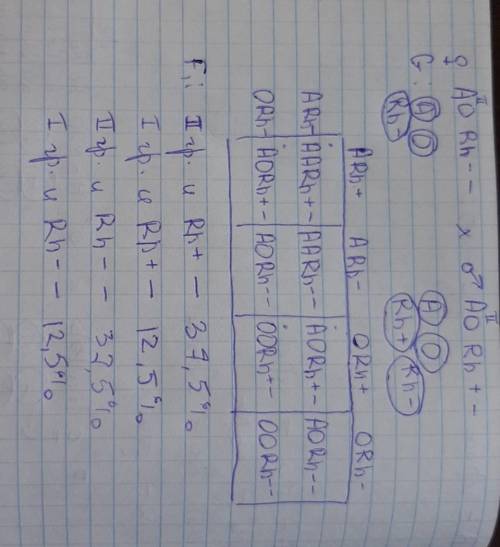 ♀ AO Rh-- x ♂ AO Rh+-
II II
G: A O A O
Rh- Rh+ Rh-
ARh+ ARh- ORh+ ORh-
ARh- AARh+- AARh-- AORh+- AORh--
ORh- AORh+- AORh-- OORh+- OORh--
F₁: II гр. и Rh+ - 37,5%
I гр. и Rh+ - 12,5%
II гр. и Rh- - 37,5%
I гр. и Rh- - 12,5%